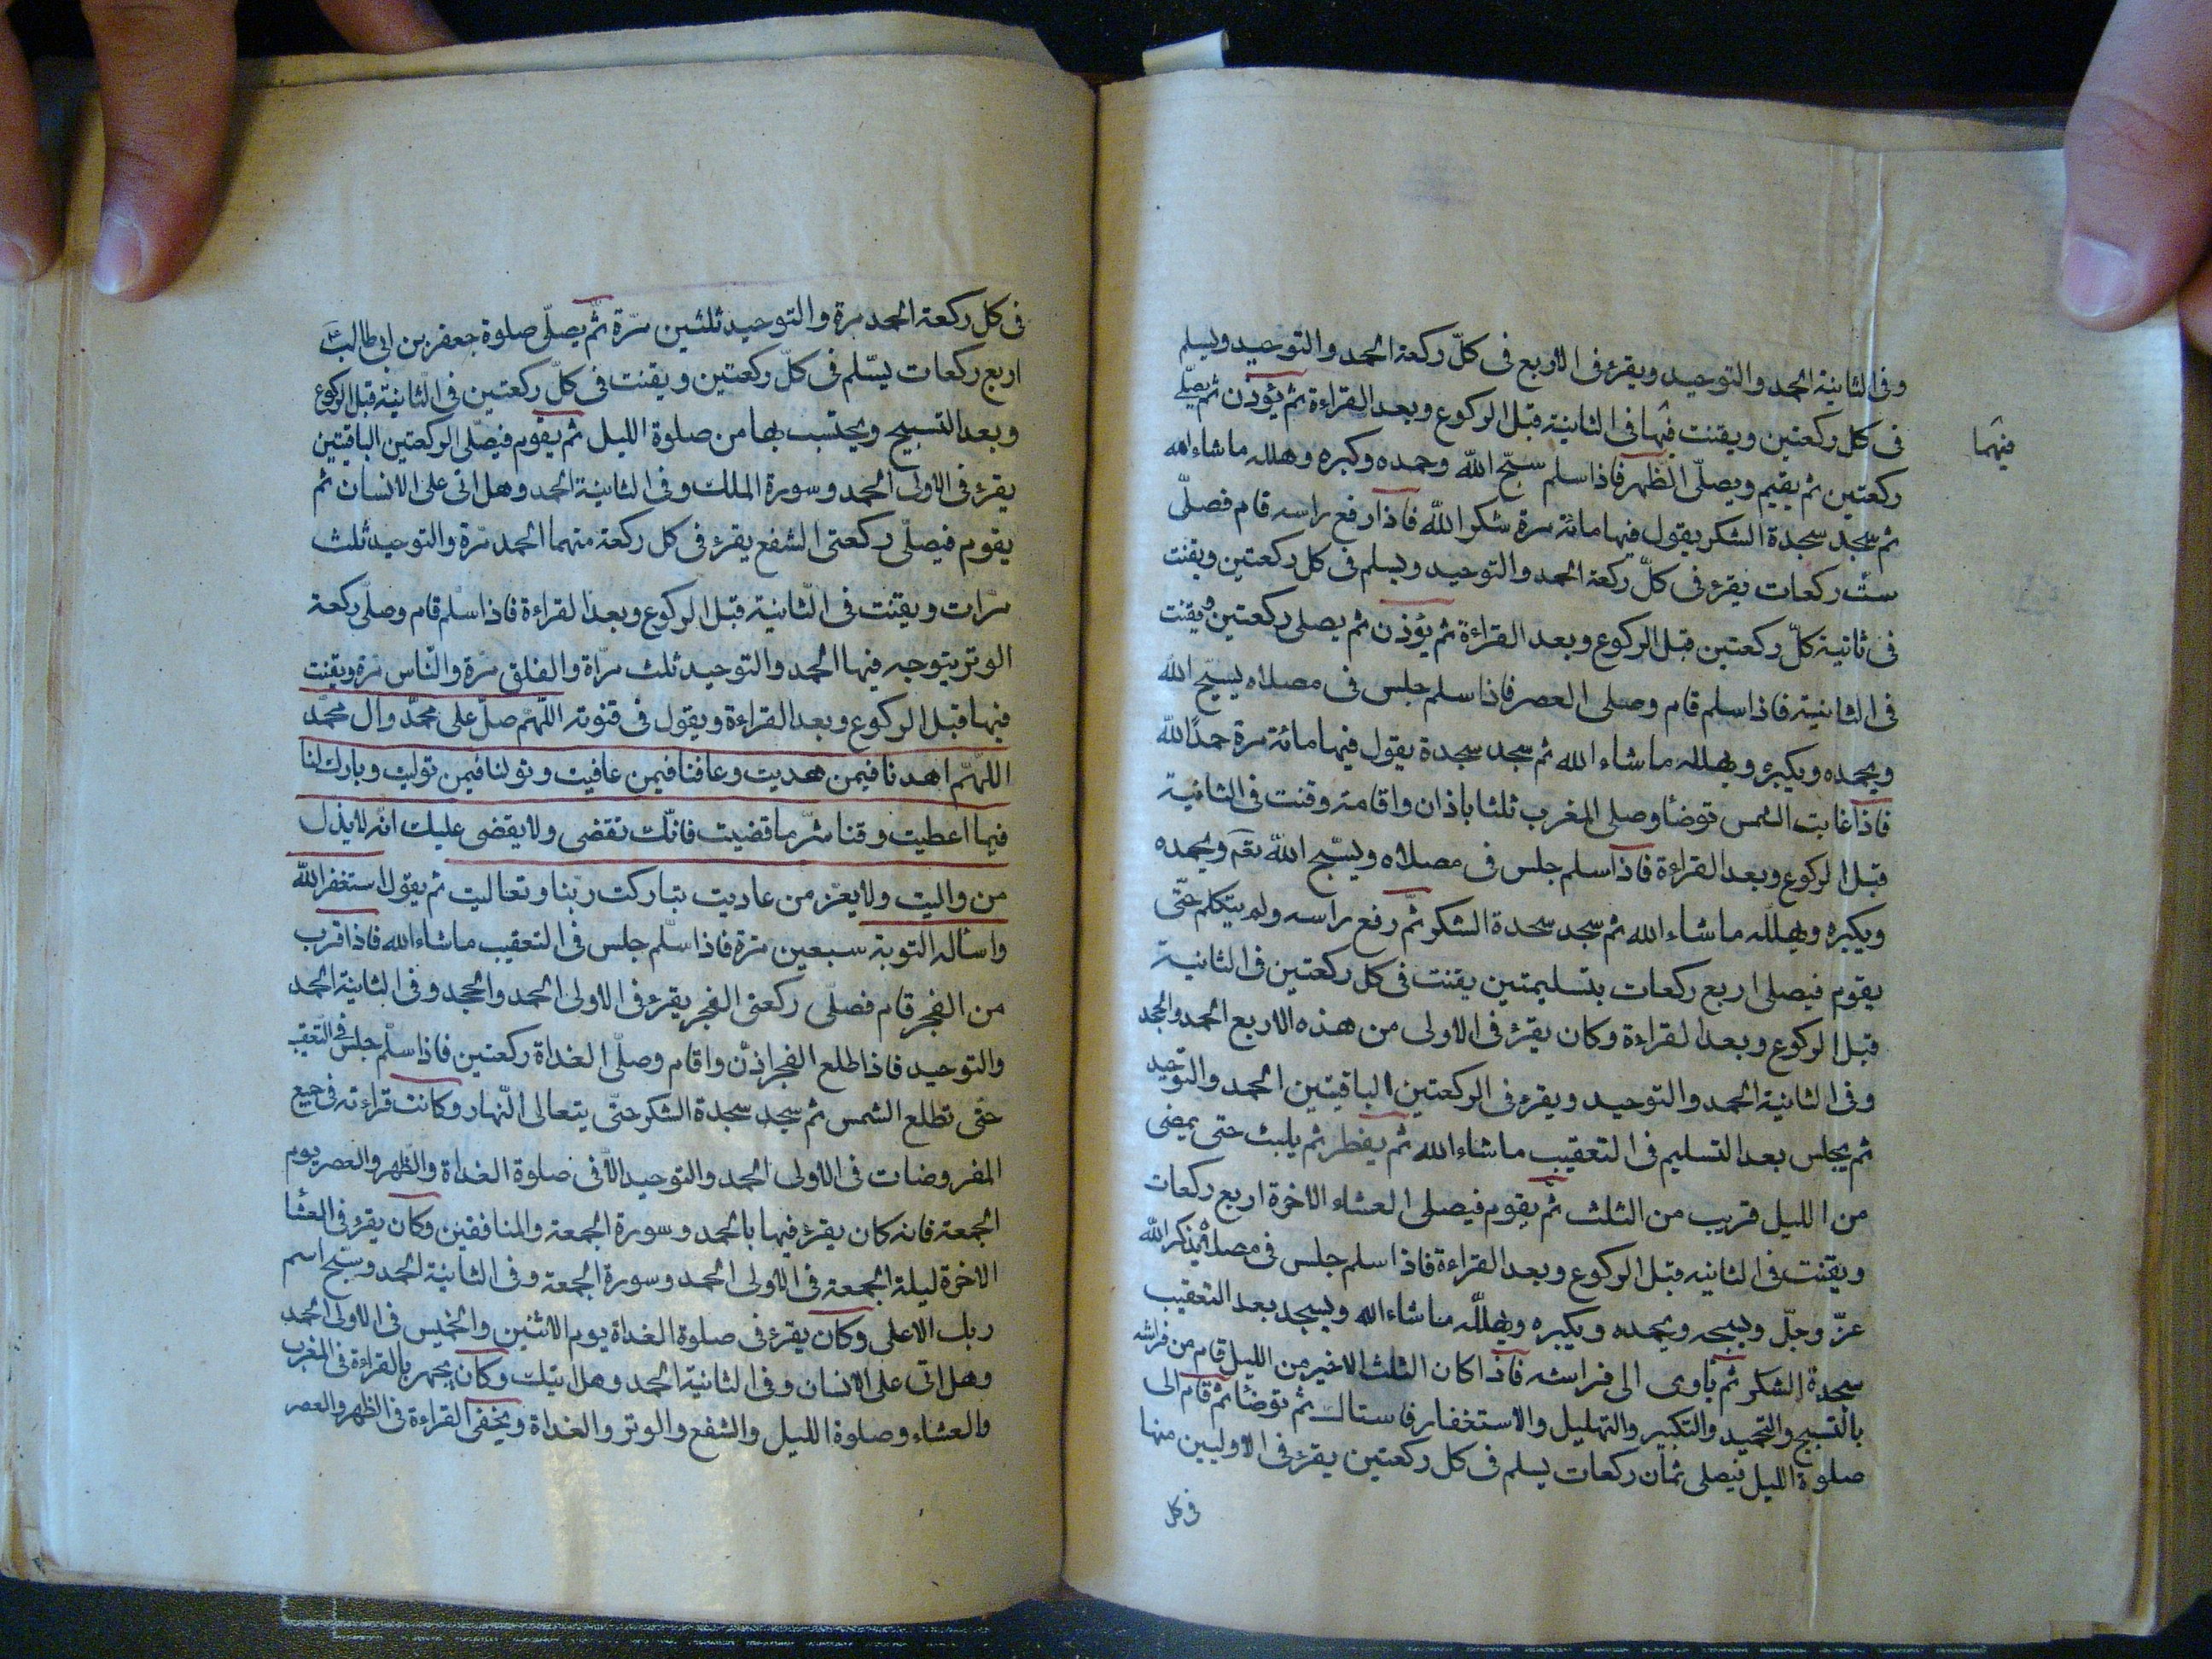 وفى الثانية الحمد والتوحيد ويقرء فى الاربع فى كلّ ركعة الحمد والتوحيد ويسلم
فى كل ركعتين ويقنت فيها فى الثانية قبل الركوع وبعد القراءة ثم يؤذن ثم يصلّى
فيهما
ركعتين ثم يقيم ويصلّى الظهر فاذا سلم سبّح اللّه وحمده وكبره وهلله ماشاء الله
ثم سجد سجدة الشكر يقول فيها مائة مرة شكرا للّه فاذا رفع راسه قام فصلّى
ست ركعات يقرء فى كلّ ركعة الحمد والتوحيد ويسلم فى كل ركعتين ويقنت
فى ثانية كلّ ركعتين قبل الركوع وبعد القراءة ثم يؤذن ثم يصلى ركعتين ويقنت
فى الثانية فاذا سلم قام وصلى العصر فاذا سلم جلس فى مصلاه يسبّح اللّه
ويحمده ويكبره ويهلله ماشاء الله ثم سجد سجدة يقول فيها مائة مرة حمدًا للّه
فاذا غابت الشمس توضأ وصلى المغرب ثلثا باذان واقامة وقنت فى الثانية
قبل الركوع وبعد القراءة فاذا سلم جلس فى مصلاه ويسبّح اللّه تعم ويحمده
ويكبره ويهلله ماشاء الله ثم سجد سجدة الشكر ثمّ رفع راسه ولم يتكلم حتّى
يقوم فيصلى اربع ركعات بتسليمتين يقنت فى كل ركعتين فى الثانية
قبل الركوع وبعد القراءة وكان يقرء فى الاولى من هذه الاربع الحمد والجحد
وفى الثانية الحمد والتوحيد ويقرء فى الركعتين الباقيتين الحمد والتوحيد
ثم يجلس بعد التسليم فى التعقيب ماشاء الله ثم يفطر ثم يلبث حتى يمضى
من الليل قريب من الثلث ثم يقوم فيصلى العشاء الاخرة اربع ركعات
ويقنت فى الثانيه قبل الركوع وبعد القراءة فاذا سلم جلس فى مصلاه يذكر اللّه
عزّ وجلّ ويسبحه ويحمده ويكبره ويهلّله ماشاء الله ويسجد بعد التعقيب
سجدة الشكر ثم ياوى الى فراشه فاذا كان الثلث الاخير من الليل قام من فراشه
بالتسبيح والتحميد والتكبير والتهليل والاستغفار فاستاك ثم توضا ثم قام الى
صلوة الليل فيصلى ثمان ركعات يسلم فى كل ركعتين يقرء فى الاوليين منها
فى كل
فى كل ركعة الحمد مرة والتوحيد ثلثين مرّة ثمّ يصلّى صلوة جعفر بن ابى طالب ع
اربع ركعات يسّلم فى كلّ ركعتين ويقنت فى كلّ ركعتين فى الثانية قبل الركوع
وبعد التسبيح ويحتسب بها من صلوة الليل ثم يقوم فيصّلى الركعتين الباقيتين
يقرء فى الاولى الحمد وسورة الملك وفى الثانية الحمد وهل اتى على الانسان ثم
يقوم فيصلّى ركعتى الشفع يقرء فى كل ركعة منهما الحمد مرّة والتوحيد ثلث
مرّات ويقنت فى الثانية قبل الركوع وبعد القراءة فاذا سلم قام وصلّى ركعة
الوتر يتوجه فيها الحمد والتوحيد ثلث مرّاة والفلق مرّة والنّاس مرّة ويقنت
فيها قبل الركوع وبعد القراءة ويقول فى قنوته اللّهمّ صلّ على محمّد وال محمّد
اللهّم اهدنا فيمن هديت وعافنا فيمن عافيت وتولنا فيمن توليت وبارك لنا
فيما اعطيت وقنا شرّ ما قضيت فانّك تقضى ولا يقضى عليك انّه لا يذل
من واليت ولا يعز من عاديت تباركت ربّنا وتعاليت ثم يقول استغفر اللّه
واساله التوبة سبعين مرّة فاذا سلّم جلس فى التعقيب ماشاء الله فاذا قرب
من الفجر قام فصلّى ركعتى الفجر يقرء فى الاولى الحمد والجحد وفى الثانية الحمد
والتوحيد فاذا طلع الفجر اذّن واقام وصلّى الغداة ركعتين فاذا سلّم جلس فى التعقيب
حتّى تطلع الشمس ثم سجد سجدة الشكر حتّى يتعالى النّهار وكانت قراءته فى جميع
المفروضات فى الاولى الحمد والتوحيد الّا فى صلوة الغداة والظهر والعصر يوم
الجمعة فانه كان يقرء فيها بالحمد وسورة الجمعة والمنافقين وكان يقرء فى العشا
الاخرة ليلة الجمعة فى الاولى الحمد وسورة الجمعة وفى الثانية الحمد وسبّح اسم
ربك الاعلى وكان يقرء فى صلوة الغداة يوم الاثنين والخميس فى الاولى الحمد
وهل اتى على الانسان وفى الثانية الحمد وهل اتيك وكان يجهر بالقراءة فى المغرب
والعشاء وصلوة الليل والشفع والوتر والغداة ويخفى القراءة فى الظهر والعصر